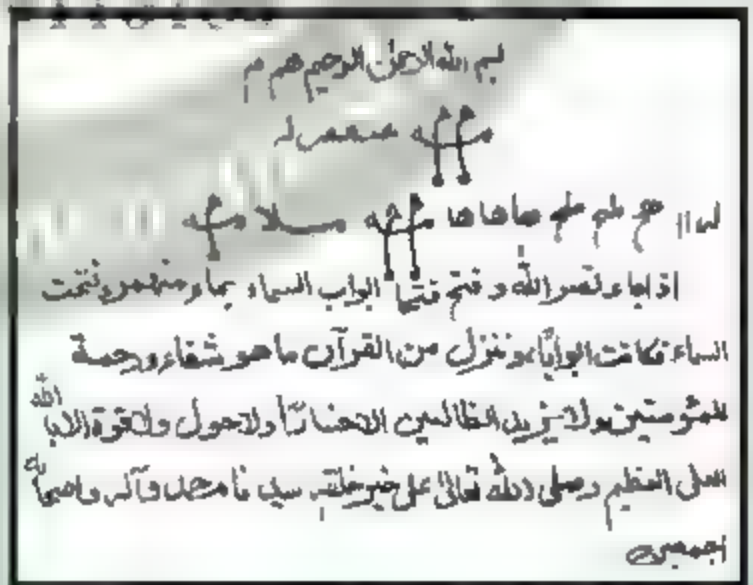 بسم الله الرحمن الرحيم هم م
صعص له
لس اا هج طم طم هاهاها سلا مه
اذا جاء نصر الله و فتح فتحنا ابواب السماء بماء منهمر وفتحت
السماء فكانت ابوابا وننزل من القرآن ما هو شفاء ورحمة
للمؤمنين ولا يزيد الظالمين الا خسارا ولا حول ولا قوة الا بالله
العلى العظيم وصلى الله تعالى على خير خلقه سيدنا محمد وآله واصحابه
اجمعين